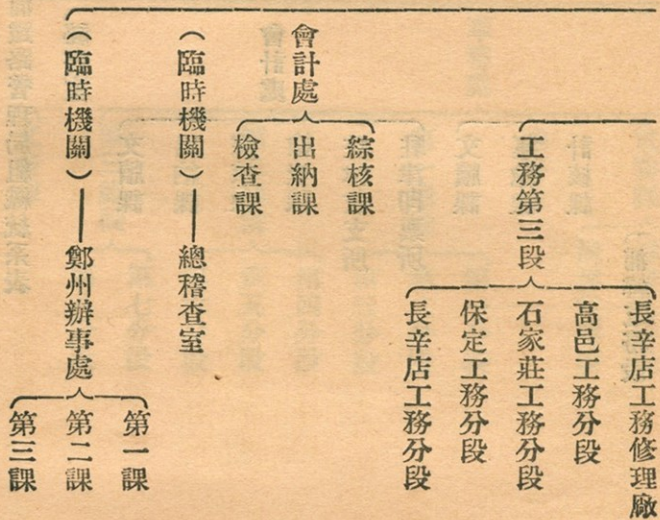 工務第三段
長辛店工務修理廠
高邑工務分段
石家莊工務分段
保定工務分段
長辛店工務分段
會計處
綜核課
出納課
檢查課
（臨時機關）——總稽查室
（臨時機關）——鄭州辦事處
第一課
第二課
第三課